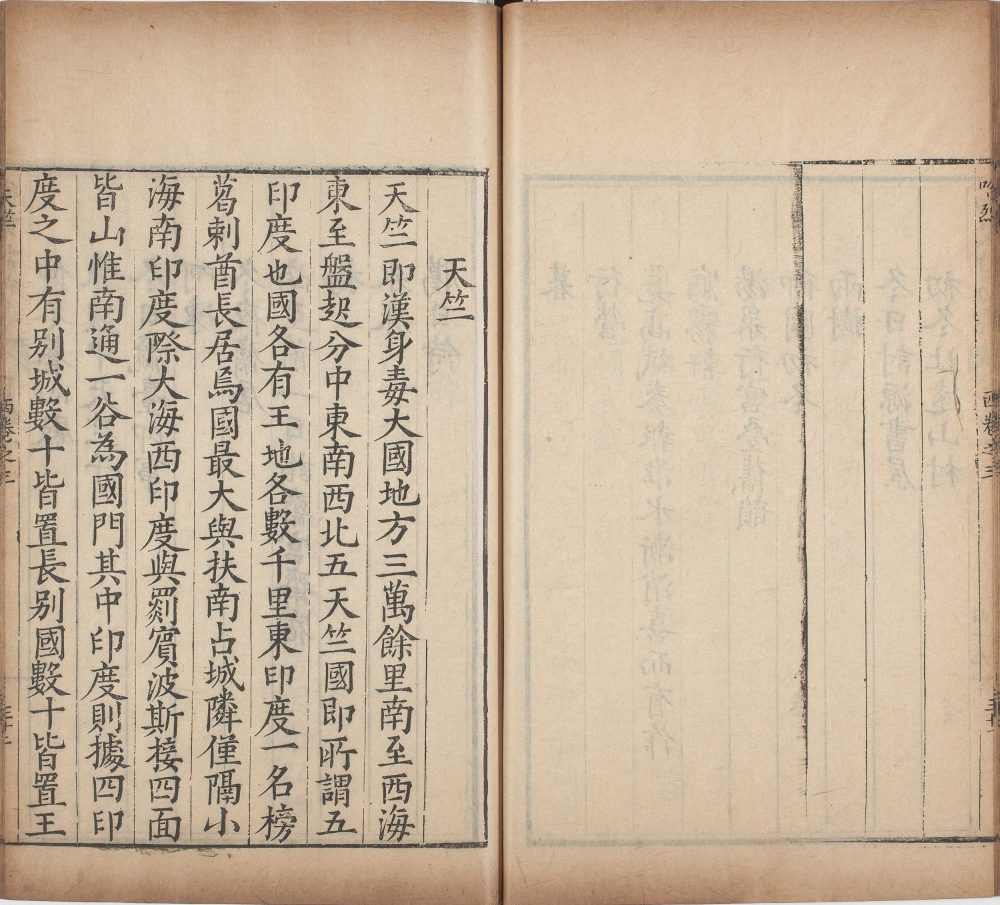 哈烈
西卷之三
天竺
天竺即漢身毒大國地方三萬餘里南至西海
東至盤起分中東南西北五天竺國即所謂五
印度也國各有王地各數千里東印度一名榜
葛剌酋長居焉國最大與扶南占城隣僅隔小
海南印度際大海西印度與罽賓波斯接四面
皆山惟南通一谷為國門其中印度則據四印
度之中有别城數十皆置長别國數十皆置王
天竺
西卷之三